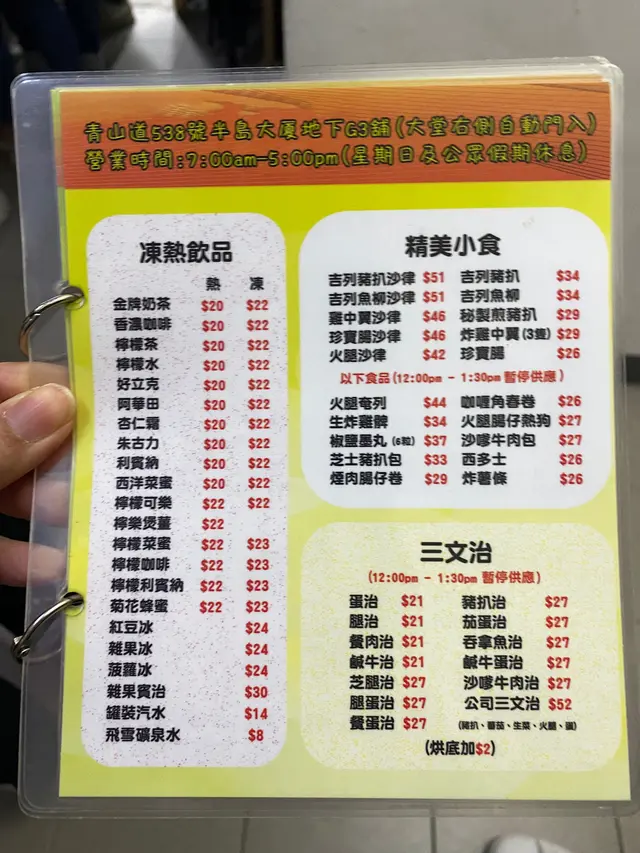 青山道538號半島大廈地下G3舖(大堂右側自動門入)
營業時間:7:00am-5:00pm(星期日及公眾假期休息)
凍熱飲品
熱 凍
金牌奶茶 $20 $22
香濃咖啡 $20 $22
檸檬茶 $20 $22
檸檬水 $20 $22
好立克 $20 $22
阿華田 $20 $22
杏仁霜 $20 $22
朱古力 $20 $22
利賓納 $20 $22
西洋菜蜜 $20 $22
檸檬可樂 $22 $22
檸樂煲薑 $22
檸檬菜蜜 $22 $23
檸檬咖啡 $22 $23
檸檬利賓納 $22 $23
菊花蜂蜜 $22 $23
紅豆冰 $24
雜果冰 $24
菠蘿冰 $24
雜果賓治 $30
罐裝汽水 $14
飛雪礦泉水 $8
精美小食
吉列豬扒沙律 $51 吉列豬扒 $34
吉列魚柳沙律 $51 吉列魚柳 $34
雞中翼沙律 $46 秘製煎豬扒 $29
珍寶腸沙律 $46 炸雞中翼(3隻) $29
火腿沙律 $42 珍寶腸 $26
以下食品(12:00pm - 1:30pm 暫停供應)
火腿奄列 $44 咖喱角春卷 $26
生炸雞髀 $34 火腿腸仔熱狗 $27
椒鹽墨丸(6粒) $37 沙嗲牛肉包 $27
芝士豬扒包 $33 西多士 $26
煙肉腸仔卷 $29 炸薯條 $26
三文治
(12:00pm - 1:30pm 暫停供應)
蛋治 $21 豬扒治 $27
腿治 $21 茄蛋治 $27
餐肉治 $21 吞拿魚治 $27
鹹牛治 $21 鹹牛蛋治 $27
芝腿治 $27 沙嗲牛肉治 $27
腿蛋治 $27 公司三文治 $52
餐蛋治 $27 (豬扒、蕃茄、生菜、火腿、蛋)
(烘底加$2)